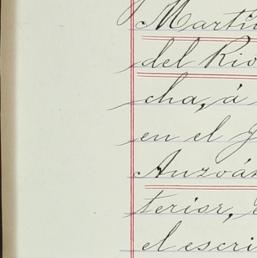 Martín
del Río
cha, á
en el J
Anzoán
terior, 
el escri